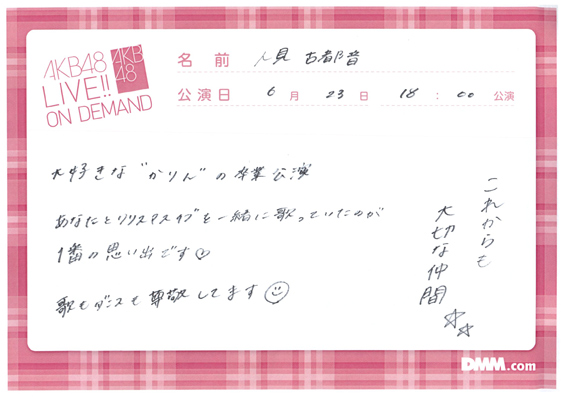 AKB48
LIVE!!
ON DEMAND
AKB
48
名前 人見古都音
公演日 6月23日 18:00公演
大好きな"かりん"の卒業公演
あなたとリリスマスイブを一緒に歌っていたのが
1番の思い出です♡
歌もダンスも尊敬してます☺
これからも
大切な仲間☆☆
DMM.com